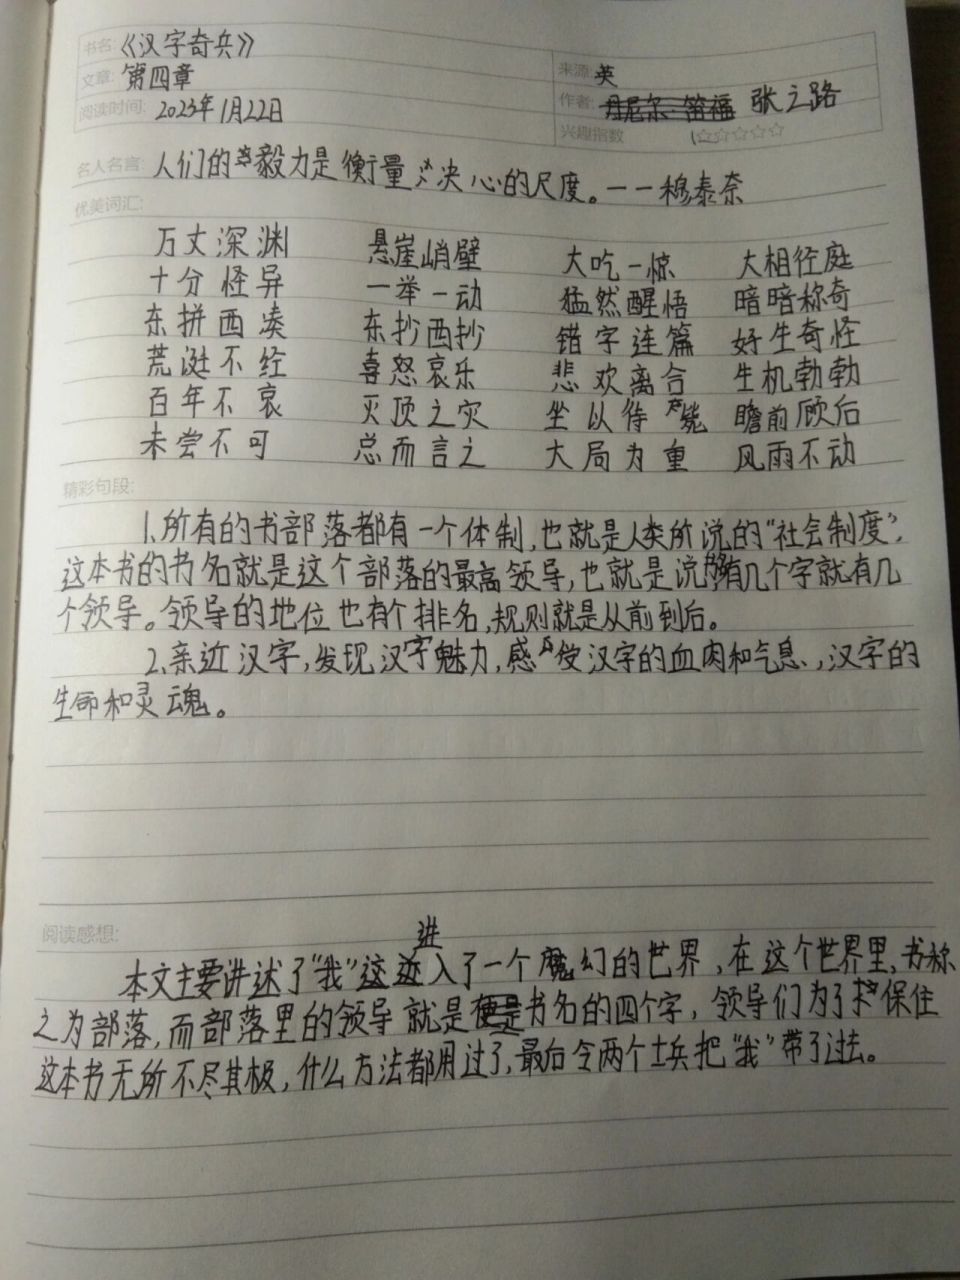 书名:《汉字奇兵》
文章:第四章 来源:英
阅读时间:2023年1月22日 作者:丹尼尔·笛福 张之路
兴趣指数
名人名言:人们的毅力是衡量决心的尺度。——穆泰奈
优美词汇:
万丈深渊 悬崖峭壁 大吃一惊 大相径庭
十分怪异 一举一动 猛然醒悟 暗暗称奇
东拼西凑 东抄西抄 错字连篇 好生奇怪
荒诞不经 喜怒哀乐 悲欢离合 生机勃勃
百年不衰 灭顶之灾 坐以待毙 瞻前顾后
未尝不可 总而言之 大局为重 风雨不动
精彩句段:
1.所有的书部落都有一个体制,也就是人类所说的“社会制度”,
这本书的书名就是这个部落的最高领导,也就是说有几个字就有几
个领导。领导的地位也有个排名,规则就是从前到后。
2.亲近汉字,发现汉字魅力,感受汉字的血肉和气息,汉字的
生命和灵魂。
阅读感想:
本文主要讲述了“我”进入了一个魔幻的世界,在这个世界里,书称
之为部落,而部落里的领导就是书名的四个字,领导们为了保住
这本书无所不尽其极,什么方法都用过了,最后令两个士兵把“我”带了过去。